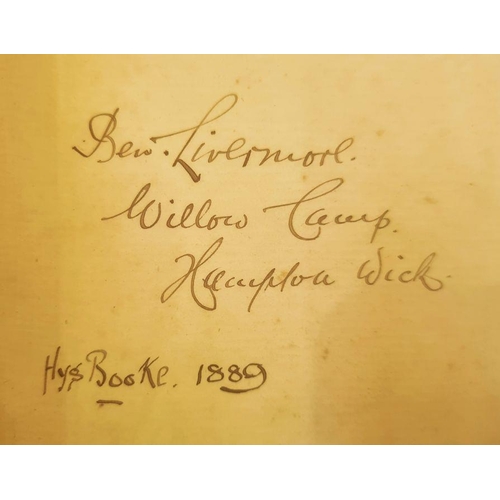 Benj. Livermore.
Willow Camp.
Hampton Wick.
Hys Booke. 1889